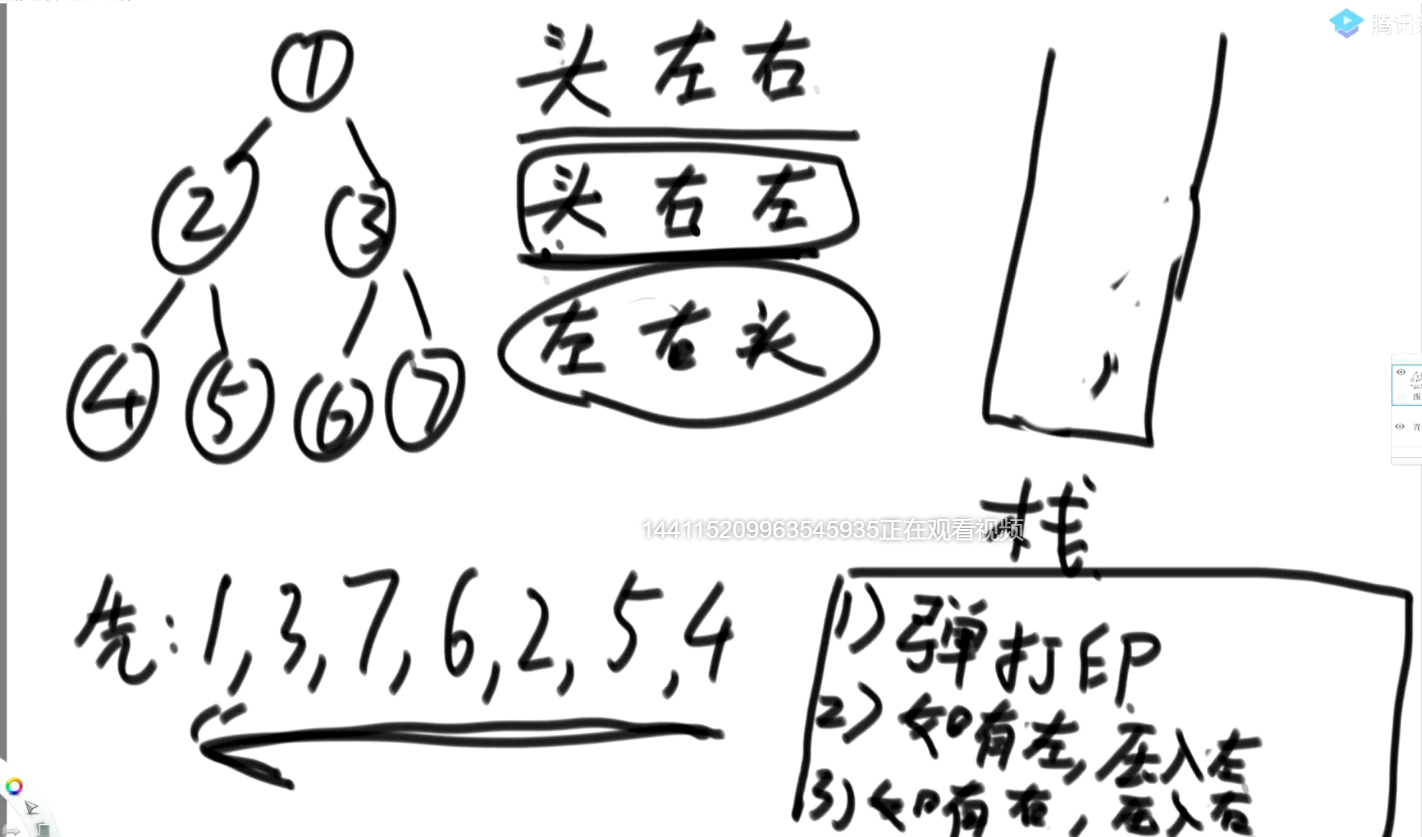 腾讯
1
头左右
2
3
头右左
左右头
4
5
6
7
144115209963545935正在观看视频
栈
先:1,3,7,6,2,5,4
1)弹打印
2)如有左,压入左
3)如有右,压入右